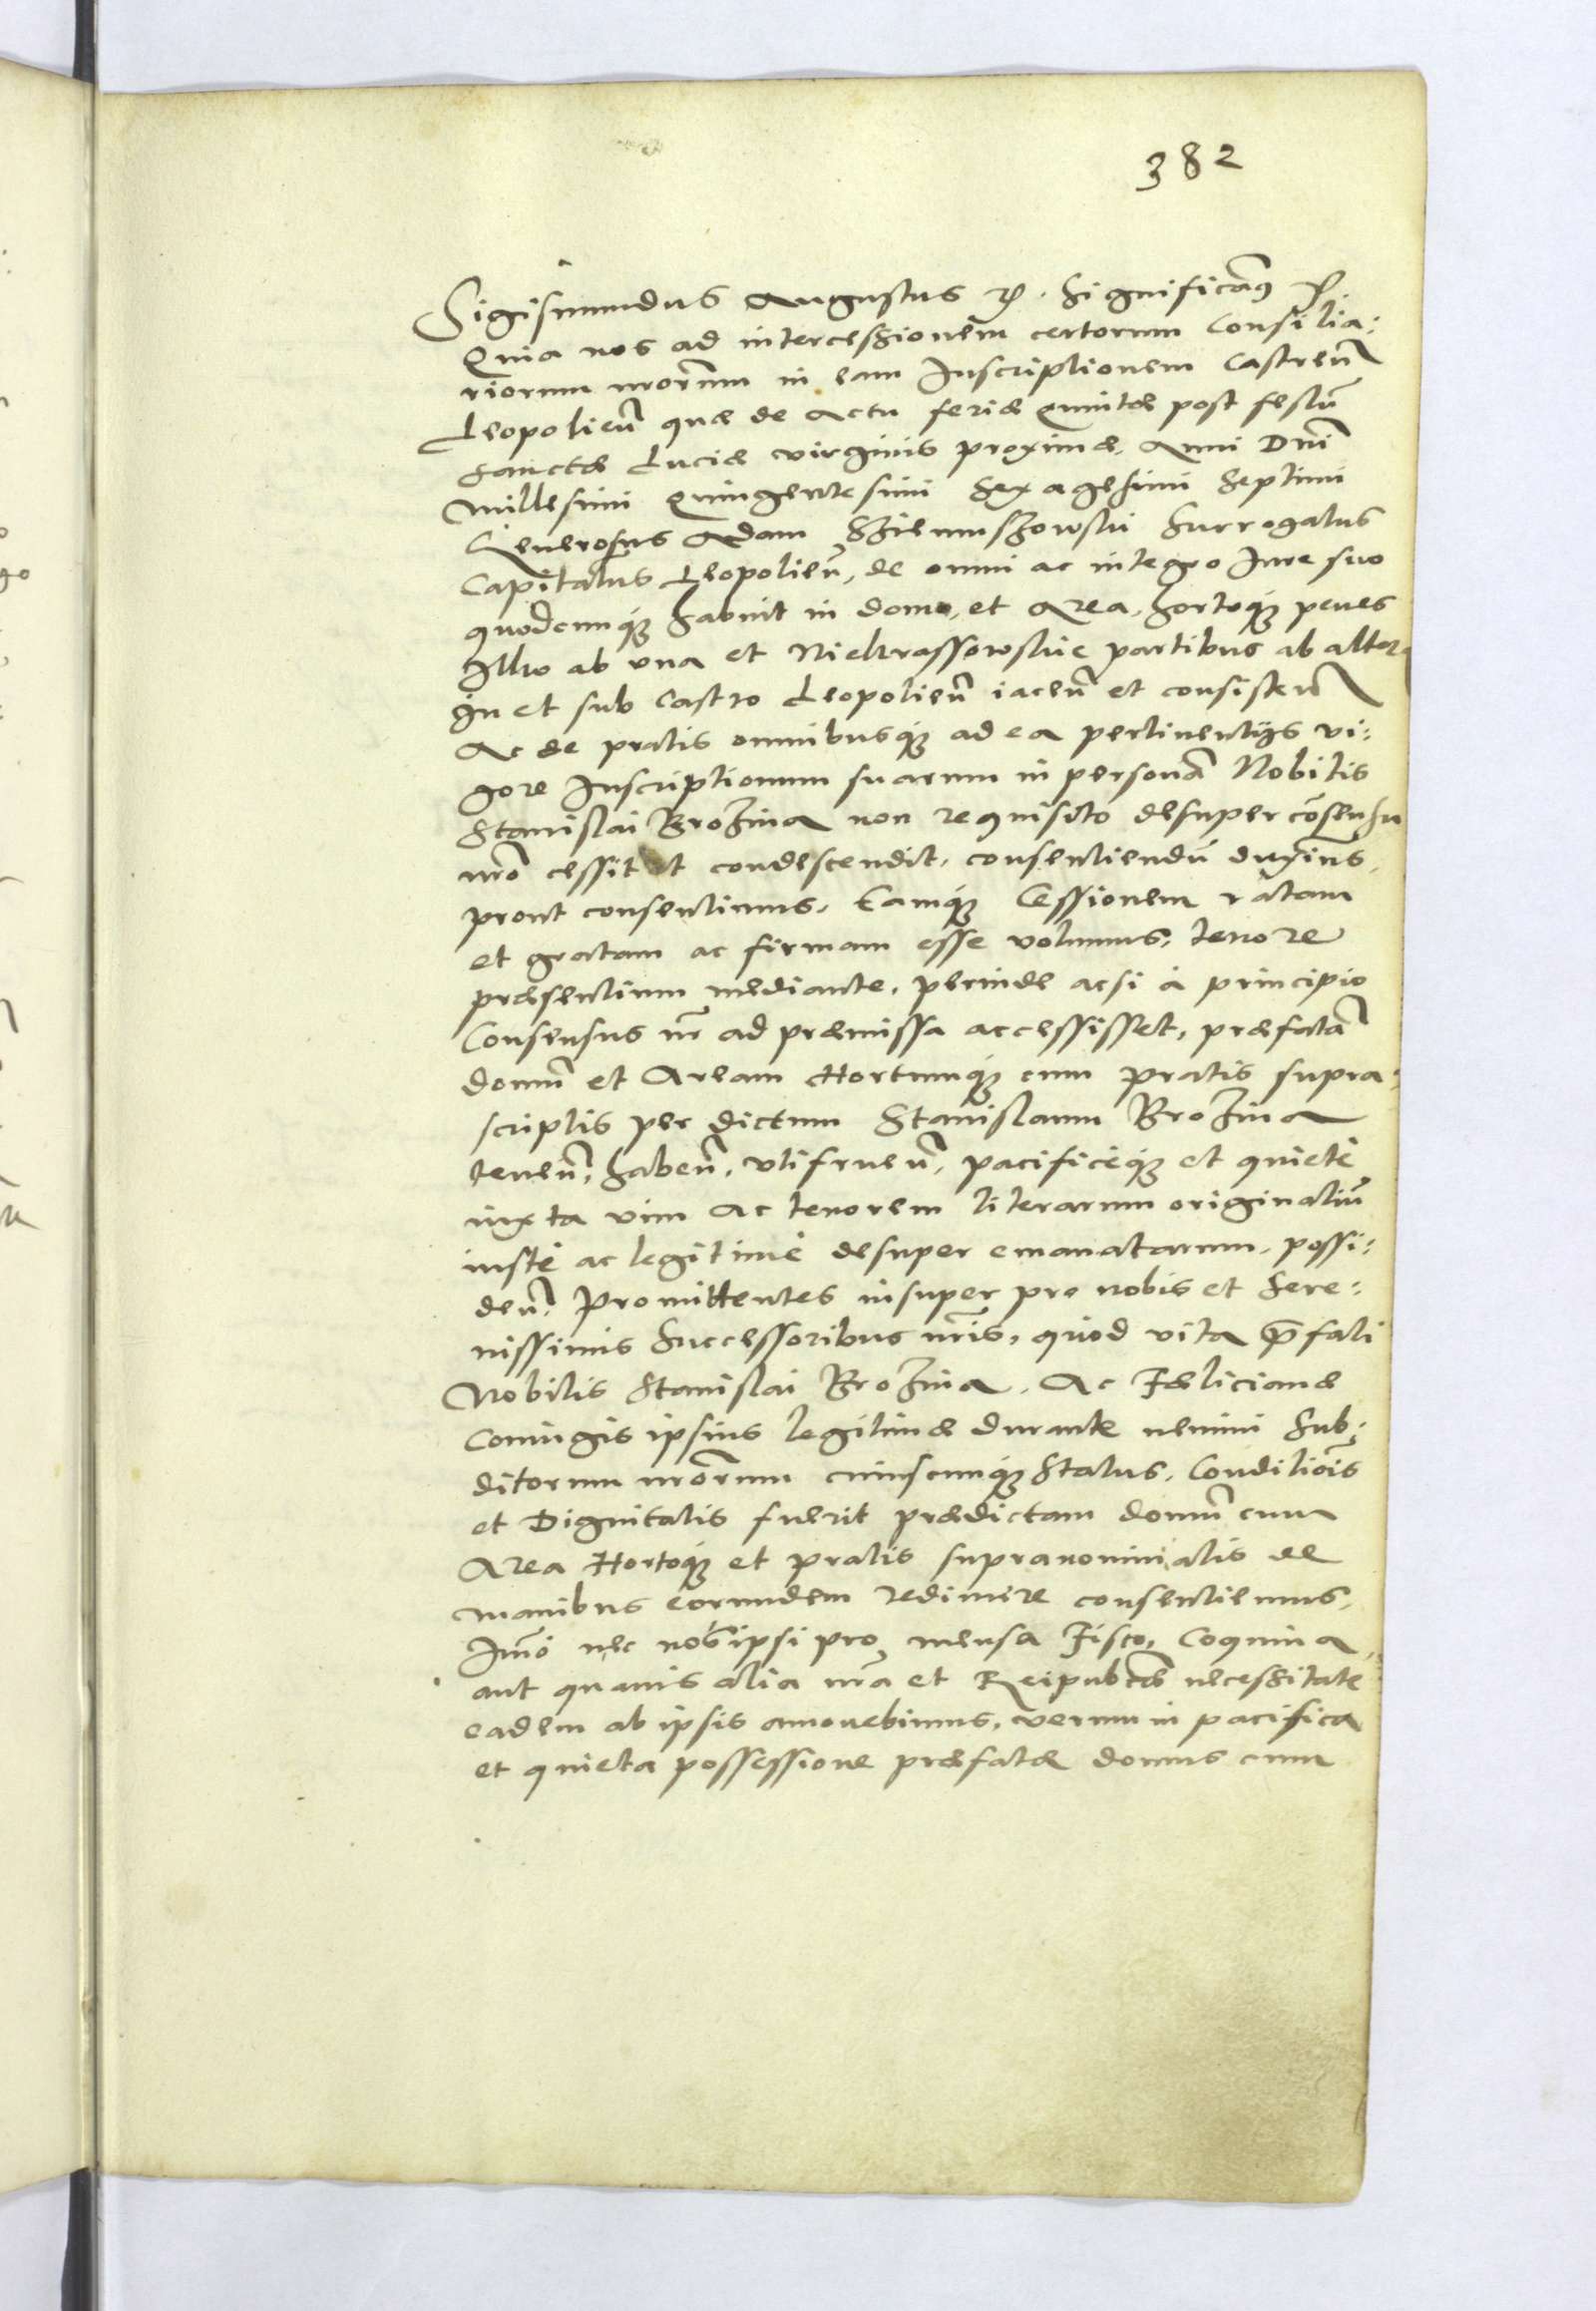 382
Sigismundus Augustus &c. Significam9 &c.
Quia nos ad intercessionem certorum Consilia:
riorum nrõrum in eam Inscriptionem Castreñ
Leopolieñ quæ de Actu feriæ Quintæ post festũ
sanctæ Luciæ virginis proximæ, Anni Dñi
Millesimi Quingentesimi Sexagesimi Septimi
Generosus Adam Surrogatus
Capitalus Leopolieñ, de omni ac integro Iure suo
quodcunq3 habuit in domo, et Area, hortoq3 penes
ab vna et partibus ab altera
In et sub Castro Leopolieñ iaceñ et consisteñ
Ac de pratis omnibusq3 ad ea pertinentijs vi:
gore Inscriptionum suarum in personã Nobilis
Stanislai Brozina non requisito desuper cõsensu
nrõ cessit et condescendit, consentiendũ duximus,
prout consentimus, Eamq3 Cessionem ratam
et gratam ac firmam esse volumus, tenore
præsentium mediante, perinde acsi à principio
Consensus nr̃ ad præmissa accessisset, præfatã
domũ et Aream Hortumq3 cum pratis supra:
scriptis per dictum Stanislaum Brozina
teneñ, habeñ, vtifrueñ, pacificeq3 et quietè
iuxta vim ac tenorem literarum originaliũ
iustè ac legitimè desuper emanatarum, possi:
deñ, Promittentes insuper pro nobis et Sere:
nissimis Successoribus nrĩs, quod vita p̃fati
Nobilis Stanislai Brozina, Ac Fæliciane
Coniugis ipsius legitimæ durante nemini Sub:
ditorum nrõrum cuiuscunq3 Status, Conditiõis
et Dignitatis fuerit prædictam domũ cum
Area Hortoq3 et pratis supranominatis de
manibus eorundem redimere consentiemus,
Imò nec nos ipsi pro mensa Fisco, Coquina,
aut quauis alia nrã et Reipubcæ necessitate
eadem ab ipsis amouebimus, verum in pacifica
et quieta possessione præfatæ domus cum